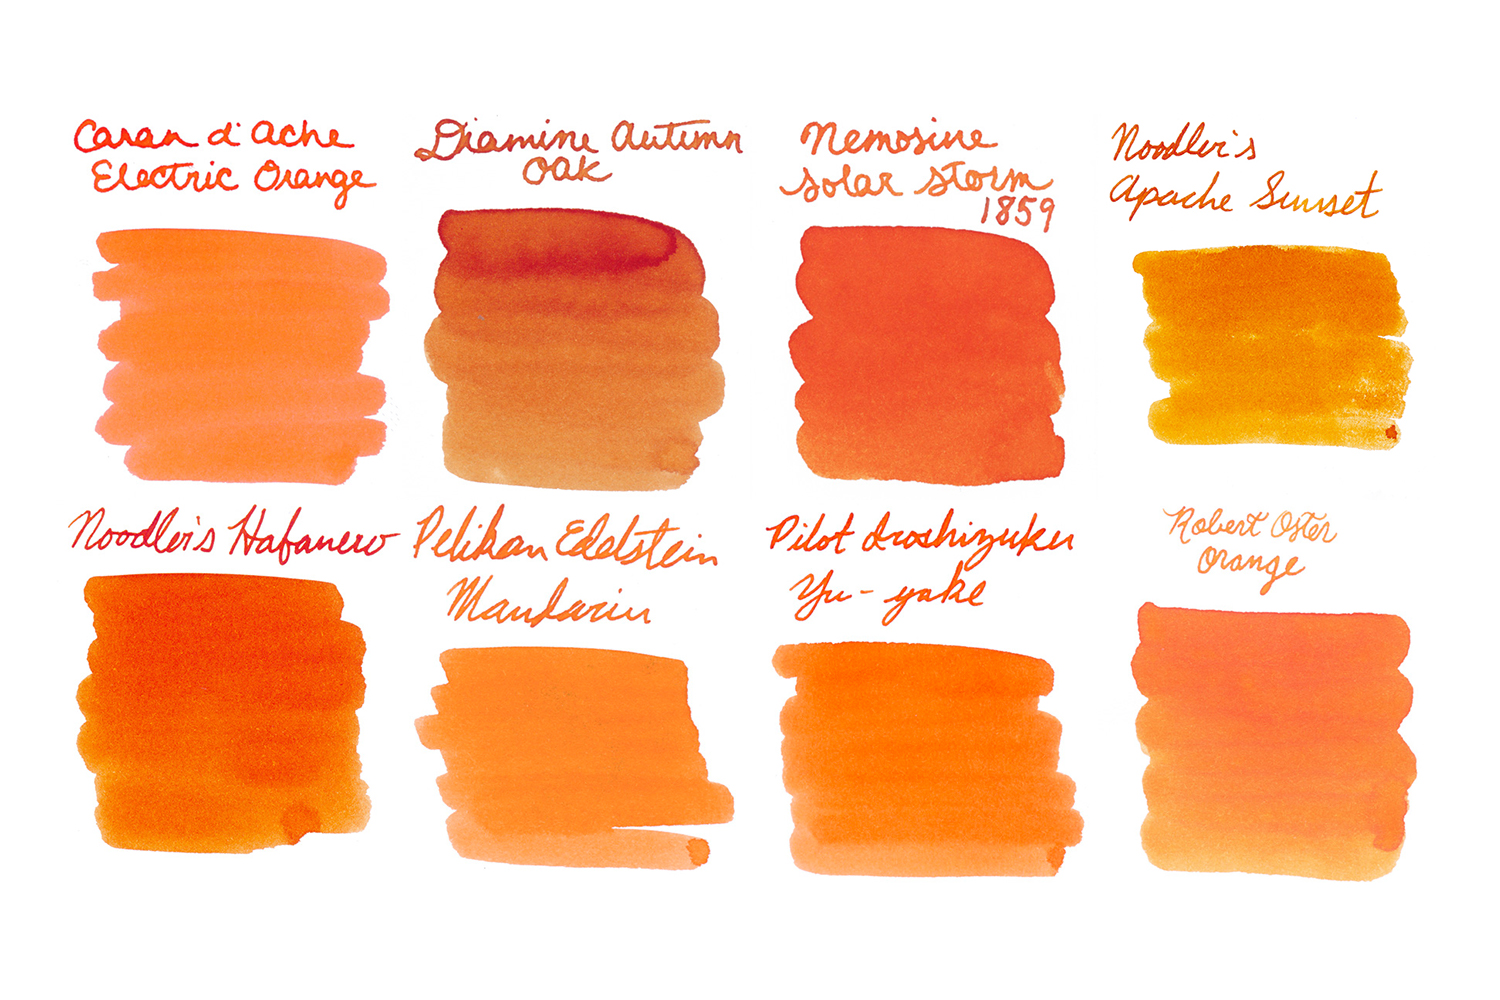 Caran d'Ache
Electric Orange
Diamine Autumn
Oak
Nemosine
Solar Storm
1859
Noodler's
Apache Sunset
Noodler's Habanero
Pelikan Edelstein
Mandarin
Pilot Iroshizuku
Yu-yake
Robert Oster
Orange